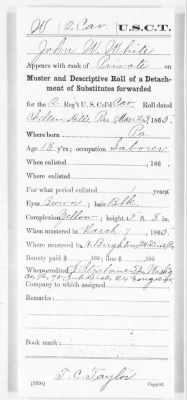 W 2 Cav. U.S.C.T.
John W. White
Appears with rank of Private on
Muster and Descriptive Roll of a Detach-
ment of Substitutes forwarded
for the 2 Reg't U. S. Col'd Cav. Roll dated
Chelton Hills Pa. Mar 23, 1865.
Where born Pa.
Age 18 y'rs; occupation Laborer
When enlisted , 186 .
Where enlisted
For what period enlisted years.
Eyes Brown; hair Blk.
Complexion Yellow; height 5 ft. 8 in.
When mustered in March 7, 1865.
Where mustered in N. Brighton
Bounty paid $ 100; due $ 100
Where credited
Company to which assigned
Remarks:
Book mark:
T. C. Taylor
(339c) Copyist.